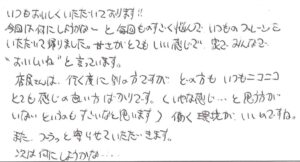 いつもおいしくいただいております!!
今回は何にしようかな~と毎回ものすごく悩んで いつものプレーンに
いただいて帰りました。甘さがとてもいい感じで 家でみんなで
"おいしいね"と言っています。
店員さんは、行く度に別の方ですが、どの方も いつもニコニコ
とても感じの良い方ばかりです。(いやな感じ…と思う方が
いないというのもすごいなと思います) 働く環境が いいのですね。
また、フラっと寄らせていただきます。
次は何にしようかな…